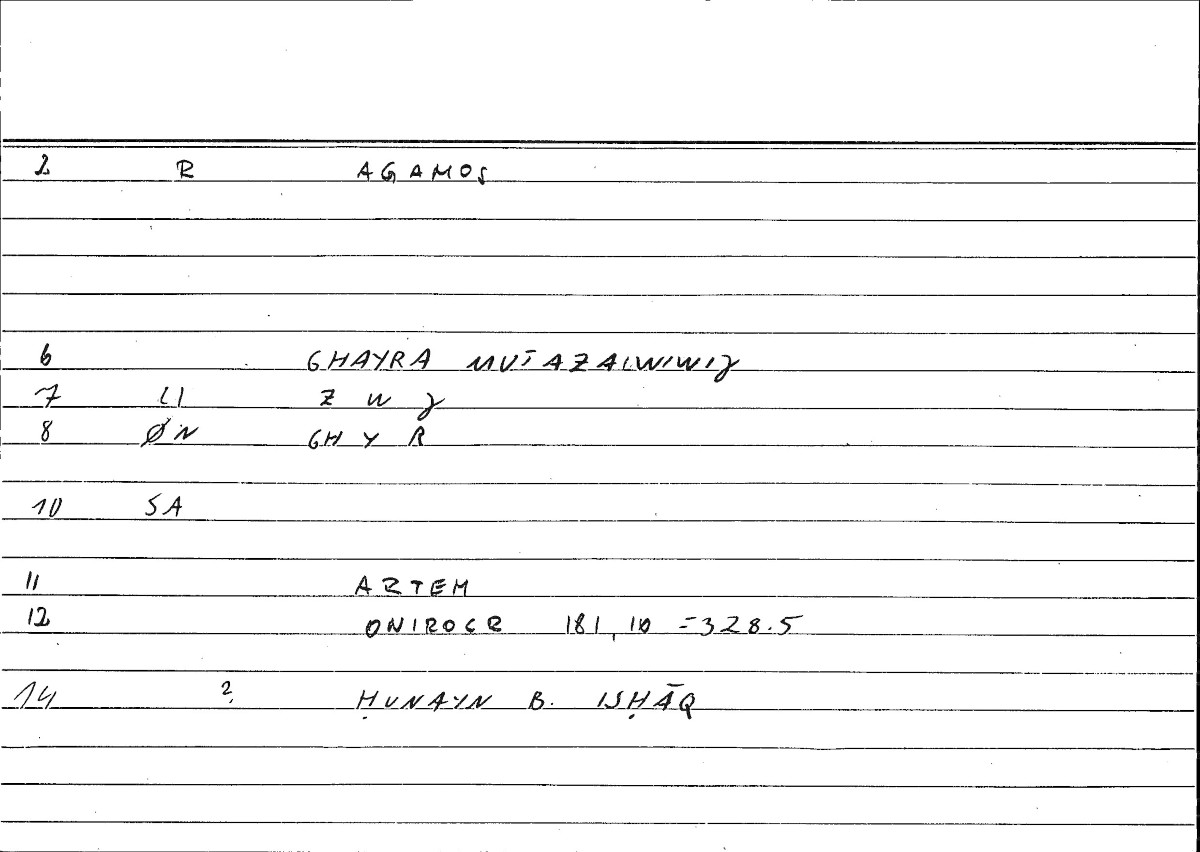 2 R AGAMOS
6 GHAYRA
7 LI Z W J
8 ØN GH Y R
10 SA
11 ARTEM
12 ONIROCR 181, 10 = 328.5
14 ? ḤUNAYN B. ISḤĀQ